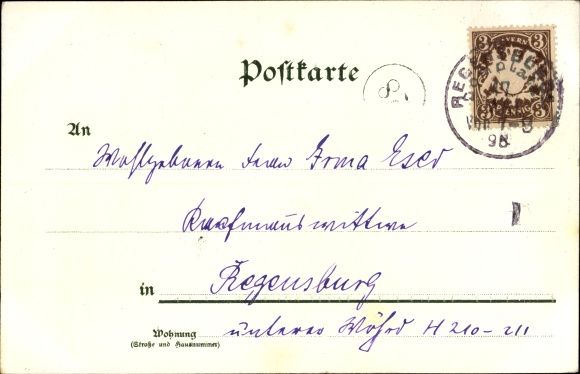 Postkarte
8
3 BAYERN 3
3 PFENNIG 3
REGENSBURG
98
An
Wohlgeboren Frau Irma
Kaufmannswittwe
in Regensburg
Wohnung
(Straße und Hausnummer)
unterer Wöhrd H 210-211